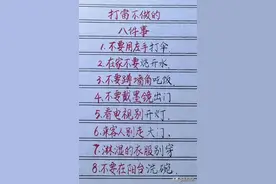 打雷不做的
八件事
1.不要用左手打伞
2.在家不要烧开水,
3.不要蹲墙角吃饭
4.不要戴墨镜出门
5.看电视别开灯,
6.来客人别走大门,
7.淋湿的衣服别穿
8.不要在阳台洗碗.